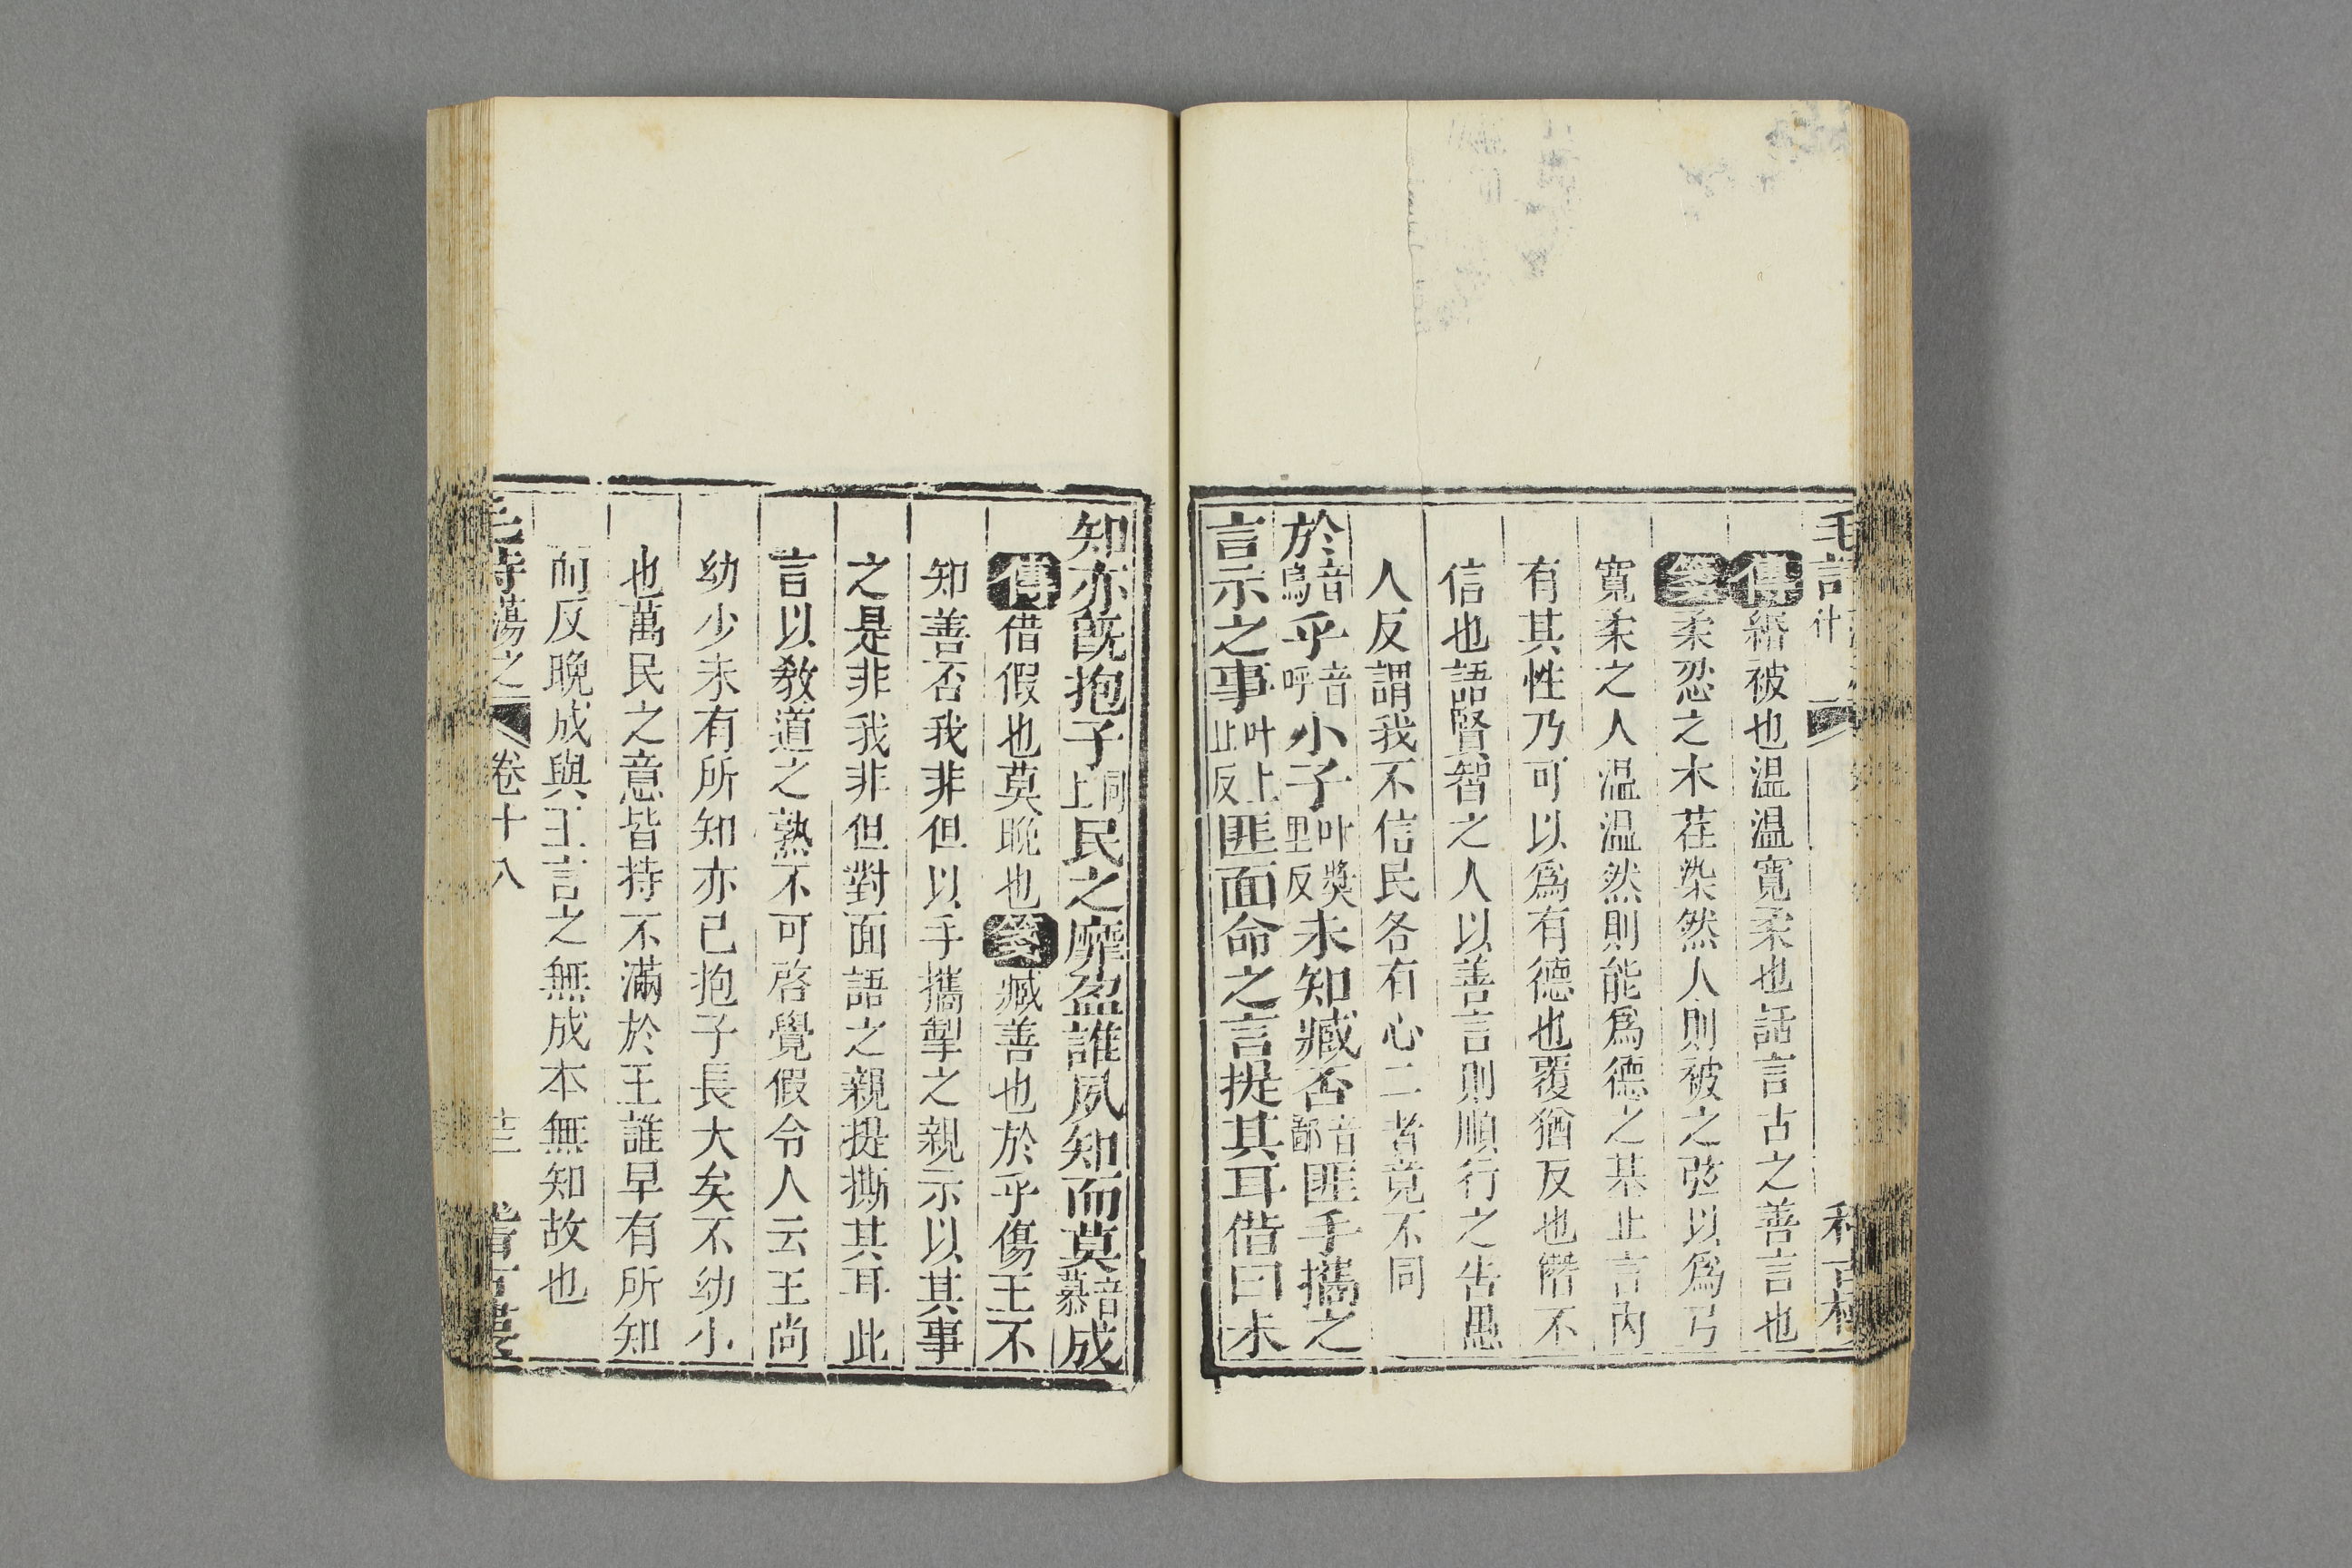 傳緡被也温温寬柔也話言古之善言也
箋柔忍之木荏染然人則被之弦以爲弓
寬柔之人温温然則能爲德之基止言内
有其性乃可以爲有德也覆猶反也僭不
信也語賢智之人以善言則順行之告愚
人反謂我不信民各有心二者竟不同
於音烏乎音呼小子叶奬里反未知臧否音鄙匪手攜之
言示之事叶上止反匪面命之言提其耳偕曰未
知亦旣抱子同上民之靡盈誰夙知而莫音慕成
傳借假也莫晚也箋臧善也於乎傷王不
知善否我非但以手攜掣之親示以其事
之是非我非但對面語之親提撕其耳此
言以敎道之熟不可啓覺假令人云王尚
幼少未有所知亦已抱子長大矣不幼小
也萬民之意皆持不滿於王誰早有所知
而反晚成與王言之無成本無知故也
毛詩蕩之 卷十八